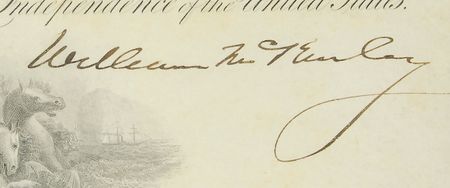 Independence of the United States.
William McKinley